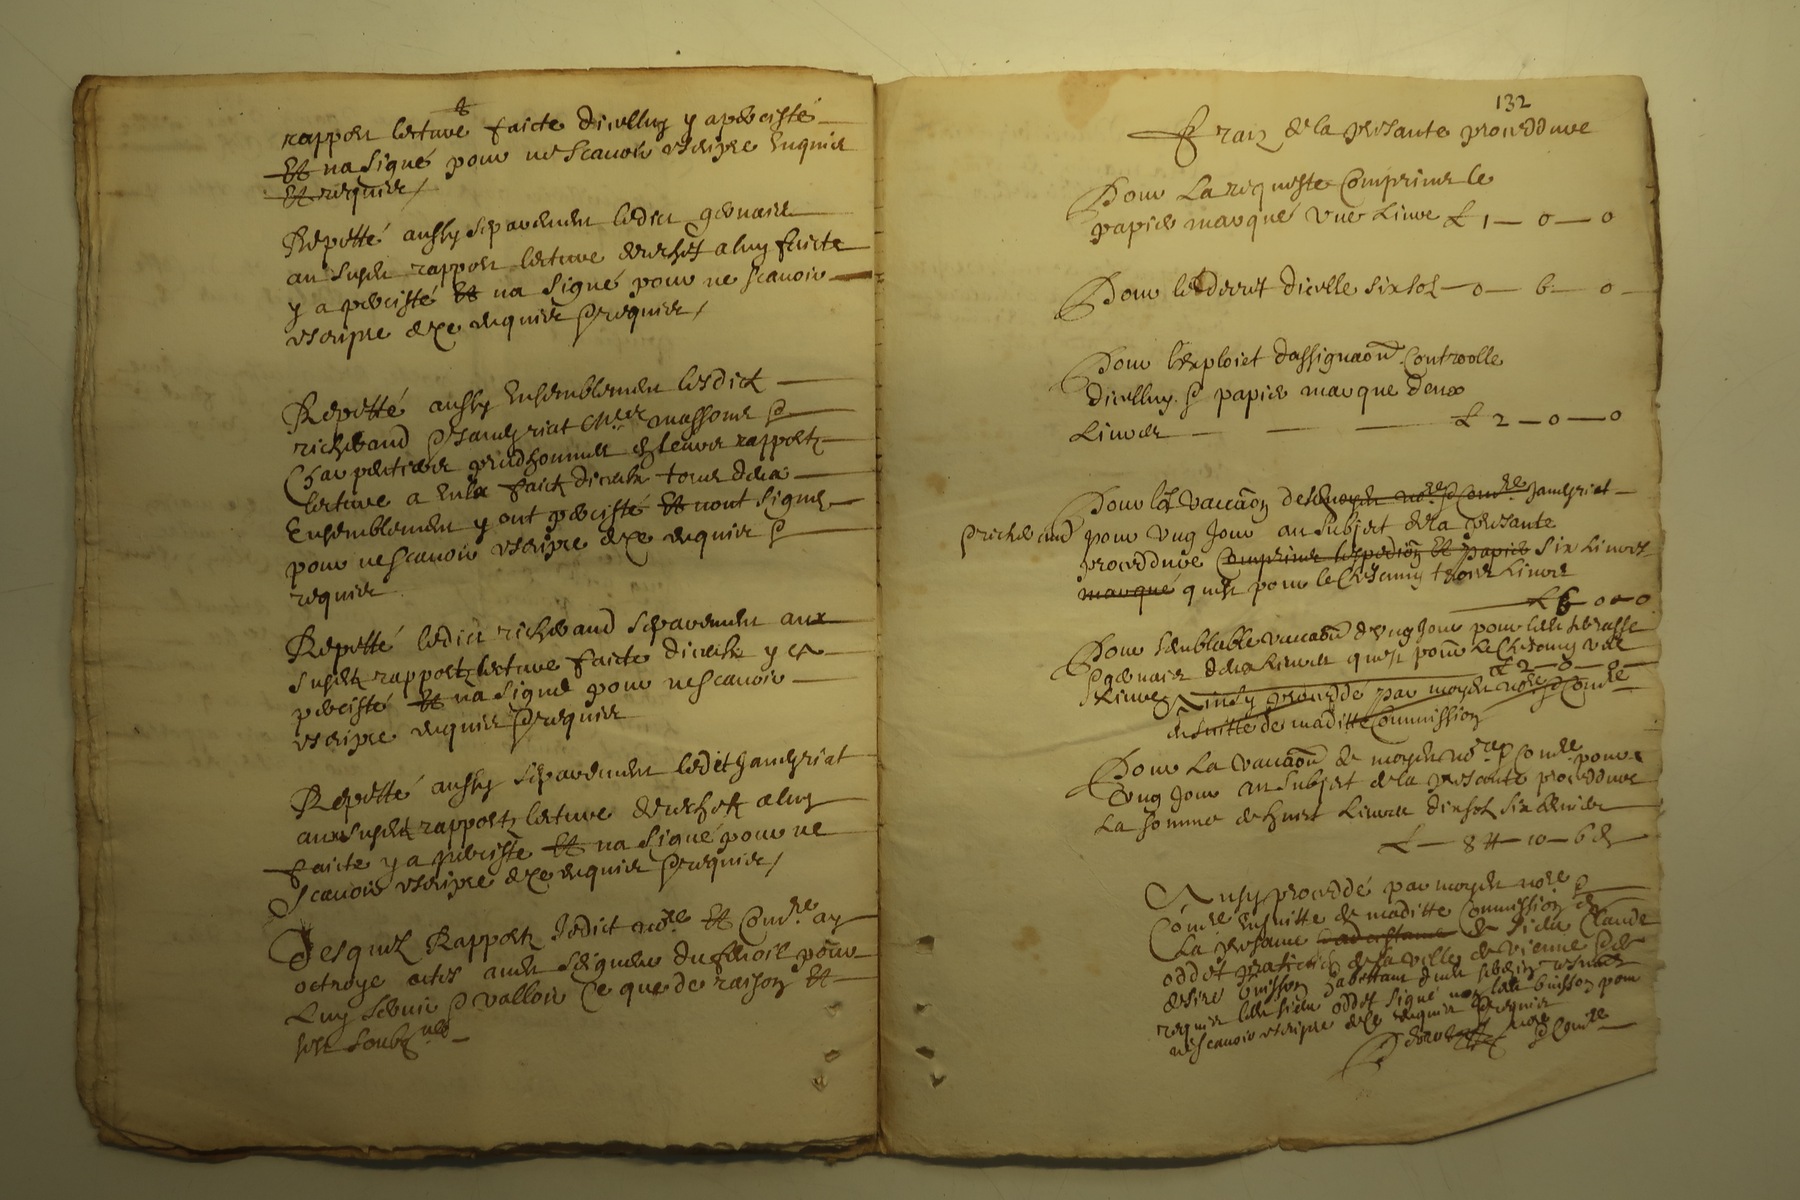 rapport lecture faicte dicelluy y a percisté
Et na signé pour ne scavoir escripre enquis
Et requis /
Repetté aussy separement ledict gernaise
au susdit rapport lecture derechef a luy faicte
y a percisté Et na signé pour ne scavoir
escripre de ce enquis & requis /
Repetté aussy Ensemblement lesdict
richerand & Jamejriat massons &
Charpentiers prudhommes & leurs rapports
lecture a eulx faict diceulx tous deux
Ensemblement y ont percisté Et nont signé
pour ne scavoir escripre de ce enquis &
requis
Repetté ledict richerand separement aux
susdit rapportz lecture faicte diceulx y a
percisté Et na signé pour ne scavoir
escripre enquis & requis
Repetté aussy separement ledit Jamejriat
aux susditz rapportz lecture derechef a luy
faicte y a percisté Et na signé pour ne
scavoir escripre de ce enquis & requis /
Desquelz Rapportz Jedict nore Et Comre ay
octroye actes audit seigneur du pour
Luy servir & valloir Ce que de raison Et
me suis soubzné
132
Fraiz de la presante proceddure
Pour La requeste Comprins le
papier marqué une Livre £ 1 — 0 — 0
Pour le decret dicelle six solz — 0 — 6 — 0
Pour lexploict dassignaon Controolle
dicelluy & papier marque deux
Livres £ 2 — 0 — 0
Pour la vaccaon des moydit nore & Comre Jamejriat
& richerand pour ung Jour au subject de la presante
proceddure Comprins lexpedion Et papier six Livres
marqué quest pour le Chescung trois Livres
£ 6 0 0
Pour semblable vaccaon dung Jour pour
& gernaise deux Livres quest pour le Chescung une
Livre £ 2 — 0 — 0
Ainsy procedde par moydit nore & Comre
ensuitte de maditte Commission
Pour La vaccaon de moydit nore & Comre pour
ung Jour au subject de la presante proceddure
La somme de huict Livres dix solz six deniers
£ — 8 # — 10 — 6 d
Ainsy proceddé par moydit nore &
Comre ensuitte de maditte Commission En
La presance de sieur Claude
oddet praticien de la ville de vienne & de
desire buisson habittant dudit
requis ledit sieur oddet signé non ledit buisson pour
ne scavoir escripre de ce enquis & requis
nore & Comre